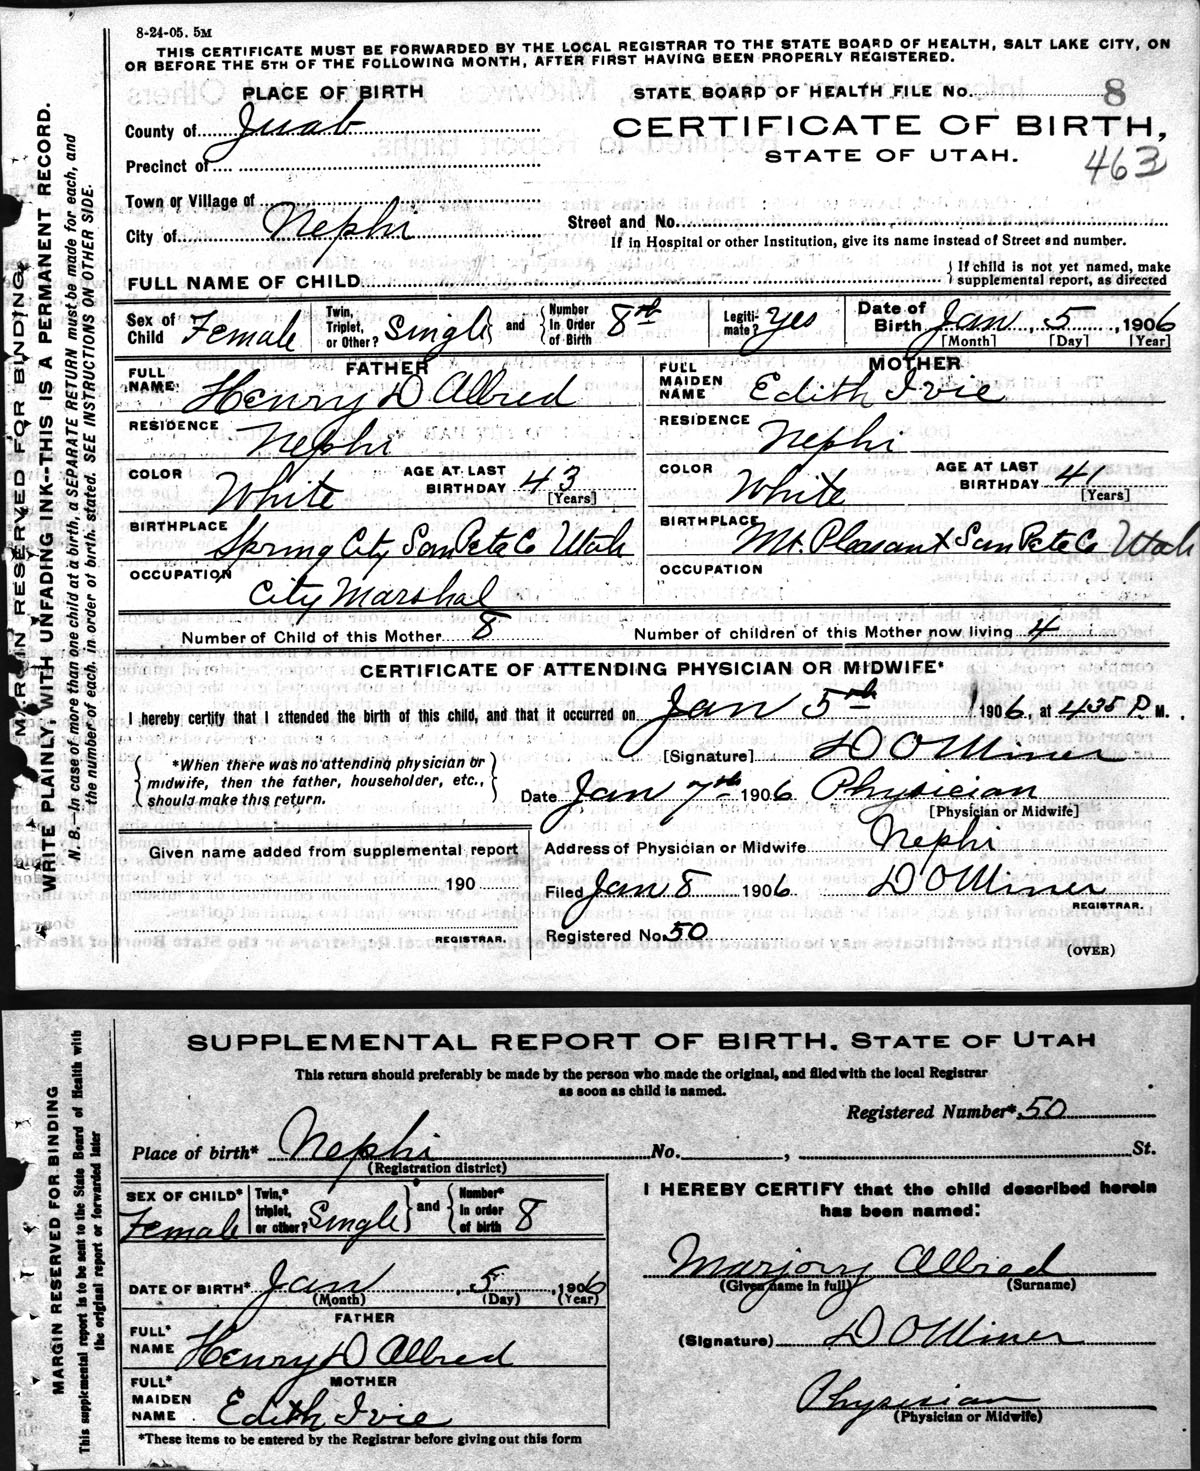 8-24-05. 5M
THIS CERTIFICATE MUST BE FORWARDED BY THE LOCAL REGISTRAR TO THE STATE BOARD OF HEALTH, SALT LAKE CITY, ON
OR BEFORE THE 5TH OF THE FOLLOWING MONTH, AFTER FIRST HAVING BEEN PROPERLY REGISTERED.
MARGIN RESERVED FOR BINDING.
WRITE PLAINLY, WITH UNFADING INK--THIS IS A PERMANENT RECORD.
N. B.—In case of more than one child at a birth, a SEPARATE RETURN must be made for each, and
the number of each, in order of birth, stated. SEE INSTRUCTIONS ON OTHER SIDE.
PLACE OF BIRTH
STATE BOARD OF HEALTH FILE No. 8
County of Juab
CERTIFICATE OF BIRTH,
STATE OF UTAH.
463
Precinct of
Town or Village of
City of Nephi
Street and No.
If in Hospital or other Institution, give its name instead of Street and number.
FULL NAME OF CHILD
If child is not yet named, make
supplemental report, as directed
Sex of Child Female
Twin, Triplet, or Other? Single and Number In Order of Birth 8th
Legitimate? Yes
Date of Birth Jan, 5, 1906
[Month] [Day] [Year]
FATHER
FULL NAME: Henry D Allred
MOTHER
FULL MAIDEN NAME Edith Ivie
RESIDENCE Nephi
RESIDENCE Nephi
COLOR White AGE AT LAST BIRTHDAY 43 [Years]
COLOR White AGE AT LAST BIRTHDAY 41 [Years]
BIRTHPLACE Spring City San Pete Co Utah
BIRTHPLACE Mt Pleasant San Pete Co Utah
OCCUPATION City Marshal
OCCUPATION
Number of Child of this Mother 8
Number of children of this Mother now living 4
CERTIFICATE OF ATTENDING PHYSICIAN OR MIDWIFE*
I hereby certify that I attended the birth of this child, and that it occurred on Jan 5th 1906, at 435 P. M.
*When there was no attending physician or
midwife, then the father, householder, etc.,
should make this return.
[Signature] D O Miner
Date Jan 7th 1906 Physician
[Physician or Midwife]
Given name added from supplemental report
190
REGISTRAR.
Address of Physician or Midwife Nephi
Filed Jan 8 1906 D O Miner
REGISTRAR.
Registered No. 50
(OVER)
MARGIN RESERVED FOR BINDING
This supplemental report is to be sent to the State Board of Health with
the original report or forwarded later
SUPPLEMENTAL REPORT OF BIRTH. STATE OF UTAH
This return should preferably be made by the person who made the original, and filed with the local Registrar
as soon as child is named.
Registered Number* 50
Place of birth* Nephi No. , St.
(Registration district)
SEX OF CHILD* Female
Twin,* triplet, or other? Single and Number* In order of birth 8
DATE OF BIRTH* Jan, 5, 1906
(Month) (Day) (Year)
FATHER
FULL* NAME Henry D Allred
MOTHER
FULL* MAIDEN NAME Edith Ivie
*These items to be entered by the Registrar before giving out this form
I HEREBY CERTIFY that the child described herein
has been named:
Marjory Allred
(Given name in full) (Surname)
(Signature) D O Miner
Physician
(Physician or Midwife)